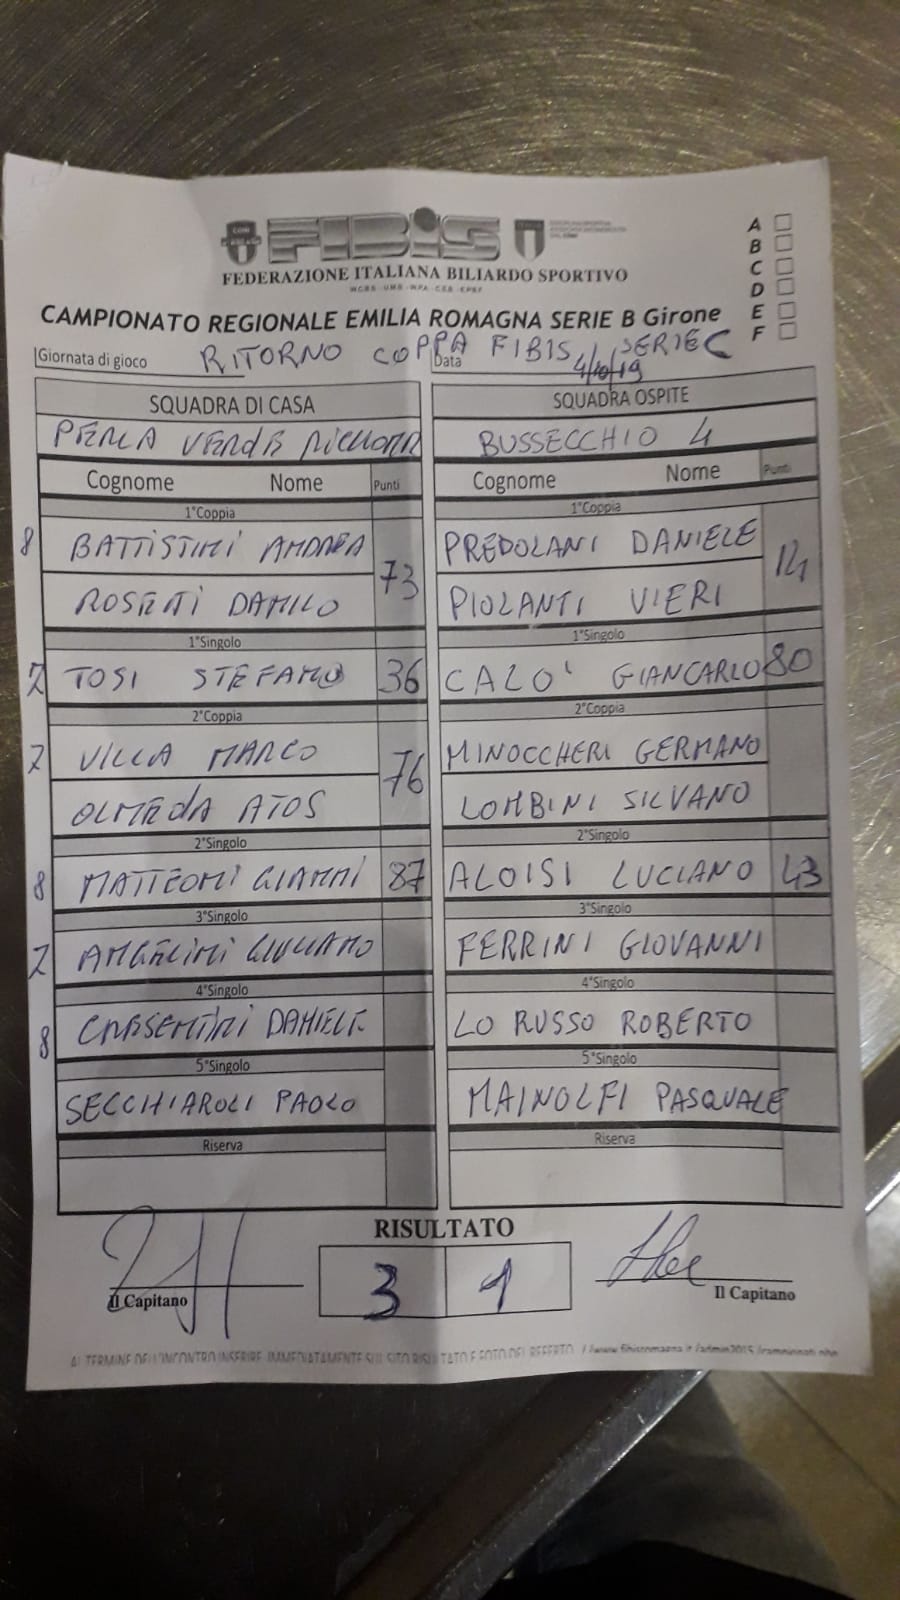 FIBIS
FEDERAZIONE ITALIANA BILIARDO SPORTIVO
WCBS - UMB - WPA - CEB - EPBF
CAMPIONATO REGIONALE EMILIA ROMAGNA SERIE B Girone
A
B
C
D
E
F
Giornata di gioco RITORNO COPPA FIBIS SERIE C
Data 4/10/19
SQUADRA DI CASA SQUADRA OSPITE
PERLA VERDE RICCIONE BUSSECCHIO 4
Cognome Nome Punti Cognome Nome Punti
1°Coppia 1°Coppia
8 BATTISTINI ANDREA 73 PREDOLANI DANIELE 14
DANILO PIOLANTI VIERI
1°Singolo 1°Singolo
7 TOSI STEFANO 36 CALO' GIANCARLO 80
2°Coppia 2°Coppia
7 VILLA MARCO 76 MINOCCHERI GERMANO
OLMEDA ATOS LOMBINI SILVANO
2°Singolo 2°Singolo
8 MATTEONI GIANNI 87 ALOISI LUCIANO 43
3°Singolo 3°Singolo
7 ANGELINI GIULIANO FERRINI GIOVANNI
4°Singolo 4°Singolo
8 DANIELE LO RUSSO ROBERTO
5°Singolo 5°Singolo
SECCHIAROLI PAOLO MAINOLFI PASQUALE
Riserva Riserva
RISULTATO
3 1
Il Capitano Il Capitano
AL TERMINE DELL'INCONTRO INSERIRE IMMEDIATAMENTE SUL SITO RISULTATO E FOTO DEL REFERTO